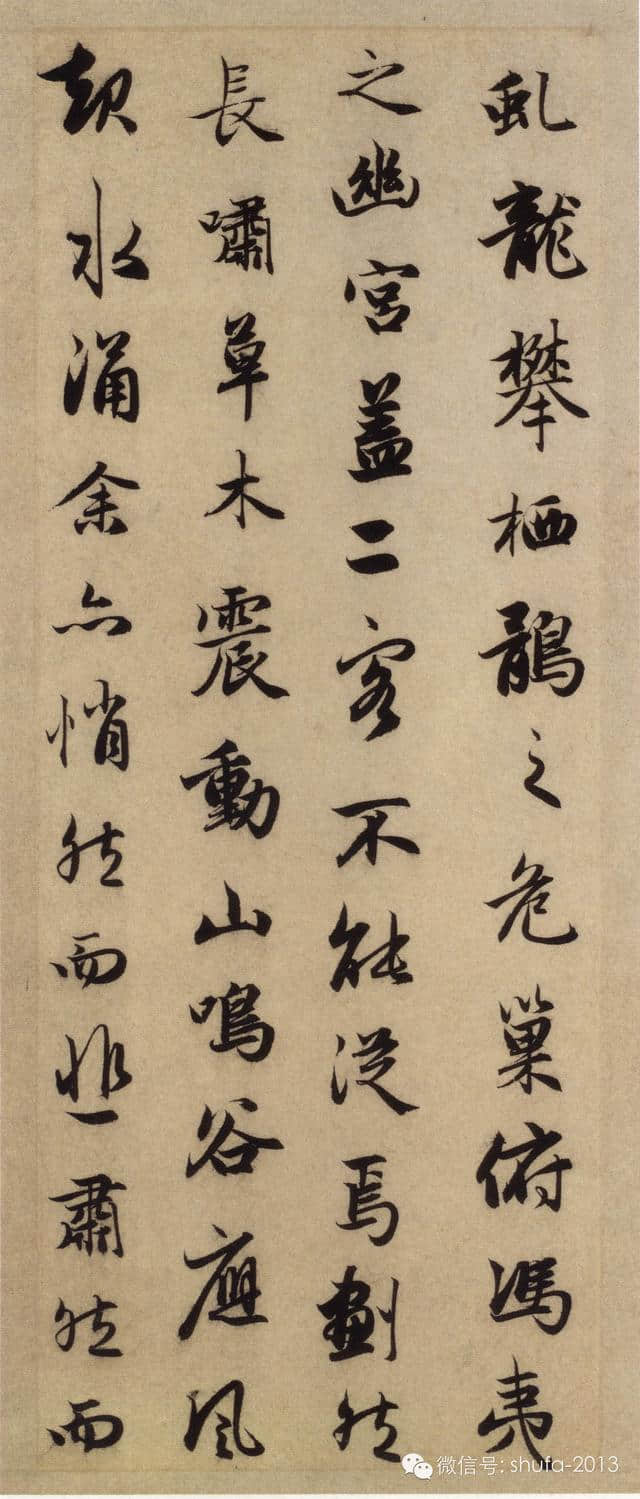 虬龍攀栖鶻之危巢俯馮夷
之幽宮蓋二客不能從焉劃然
長嘯草木震動山鳴谷應風
起水涌余亦悄然而悲肅然而
微信号: shufa-2013